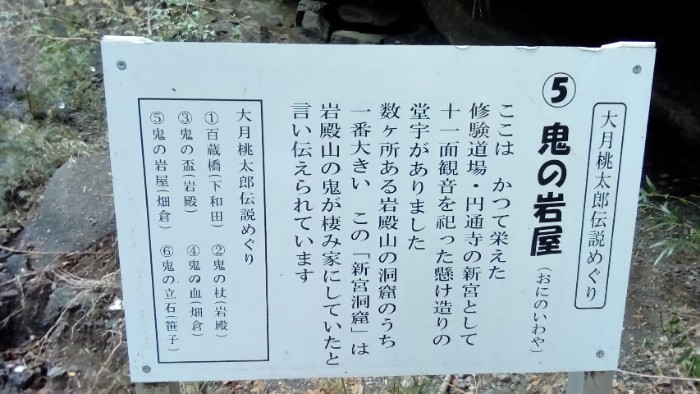 大月桃太郎伝説めぐり
⑤ 鬼の岩屋(おにのいわや)
ここは かつて栄えた
修験道場・円通寺の新宮として
十一面観音を祀った懸け造りの
堂宇がありました
数ヶ所ある岩殿山の洞窟のうち
一番大きい この「新宮洞窟」は
岩殿山の鬼が棲み家にしていたと
言い伝えられています
大月桃太郎伝説めぐり
①百蔵橋(下和田) ②鬼の杖(岩殿)
③鬼の盃(岩殿) ④鬼の血(畑倉)
⑤鬼の岩屋(畑倉) ⑥鬼の立石(笹子)